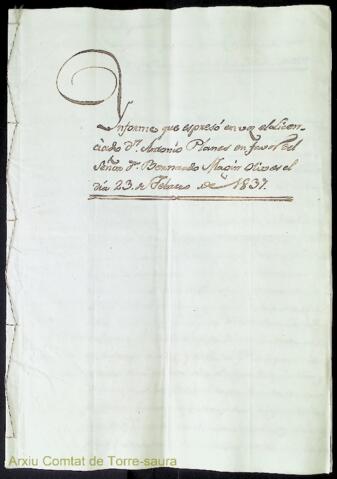 Informe que espresó en voz el Licen-
ciado Dn. Antonio Planes en favor del
Señor Dn. Bernardo Magin Olives el
dia 23. de Febrero de 1837.
Arxiu Comtat de Torre-saura